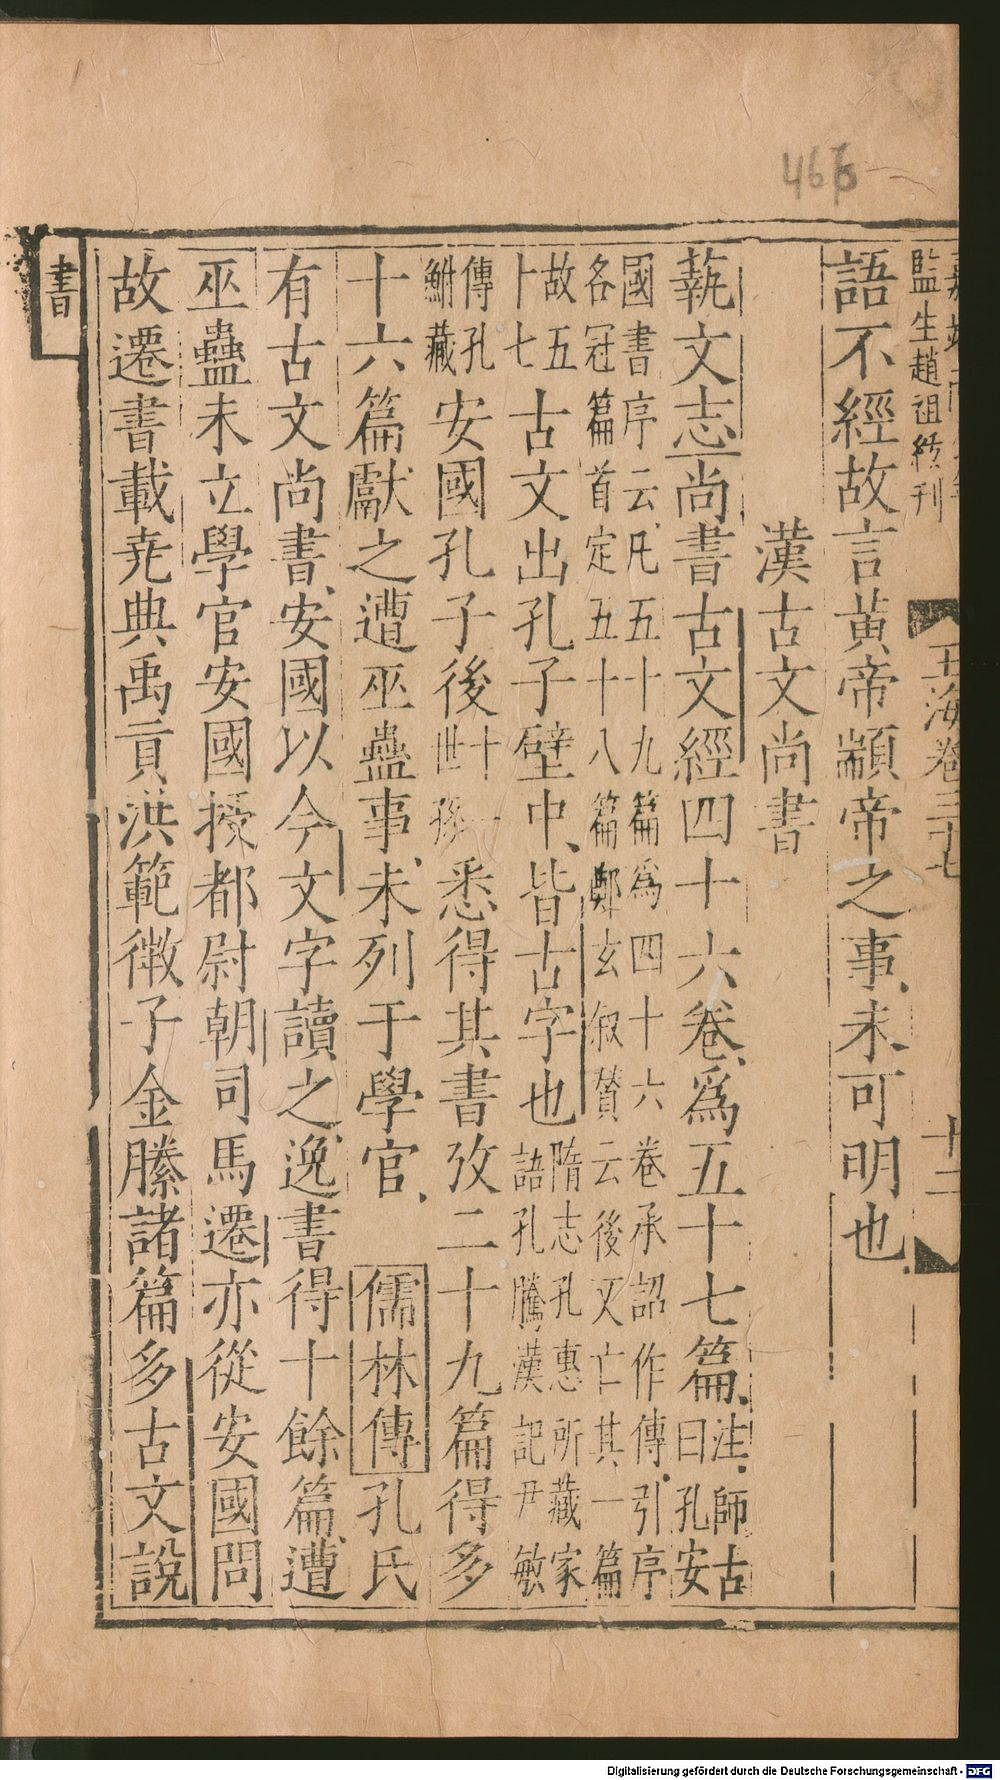 466
監生趙祖刊
玉海卷三十七
十二
語不經故言黃帝顓帝之事未可明也
漢古文尚書
蓺文志尚書古文經四十六卷爲五十七篇注師古曰孔安
國書序云凡五十九篇爲四十六卷承詔作傳引序
各冠篇首定五十八篇鄭玄叙贊云後又亡其一篇
故五卜七古文出孔子壁中皆古字也隋志孔惠所藏家語孔騰漢記尹敏
傳孔鮒藏安國孔子後十一世孫悉得其書攷二十九篇得多
十六篇獻之遭巫蠱事未列于學官儒林傳孔氏
有古文尚書安國以今文字讀之逸書得十餘篇遭
巫蠱未立學官安國授都尉朝司馬遷亦從安國問
故遷書載尭典禹貢洪範微子金縢諸篇多古文說
書
Digitalisierung gefördert durch die Deutsche Forschungsgemeinschaft - DFG